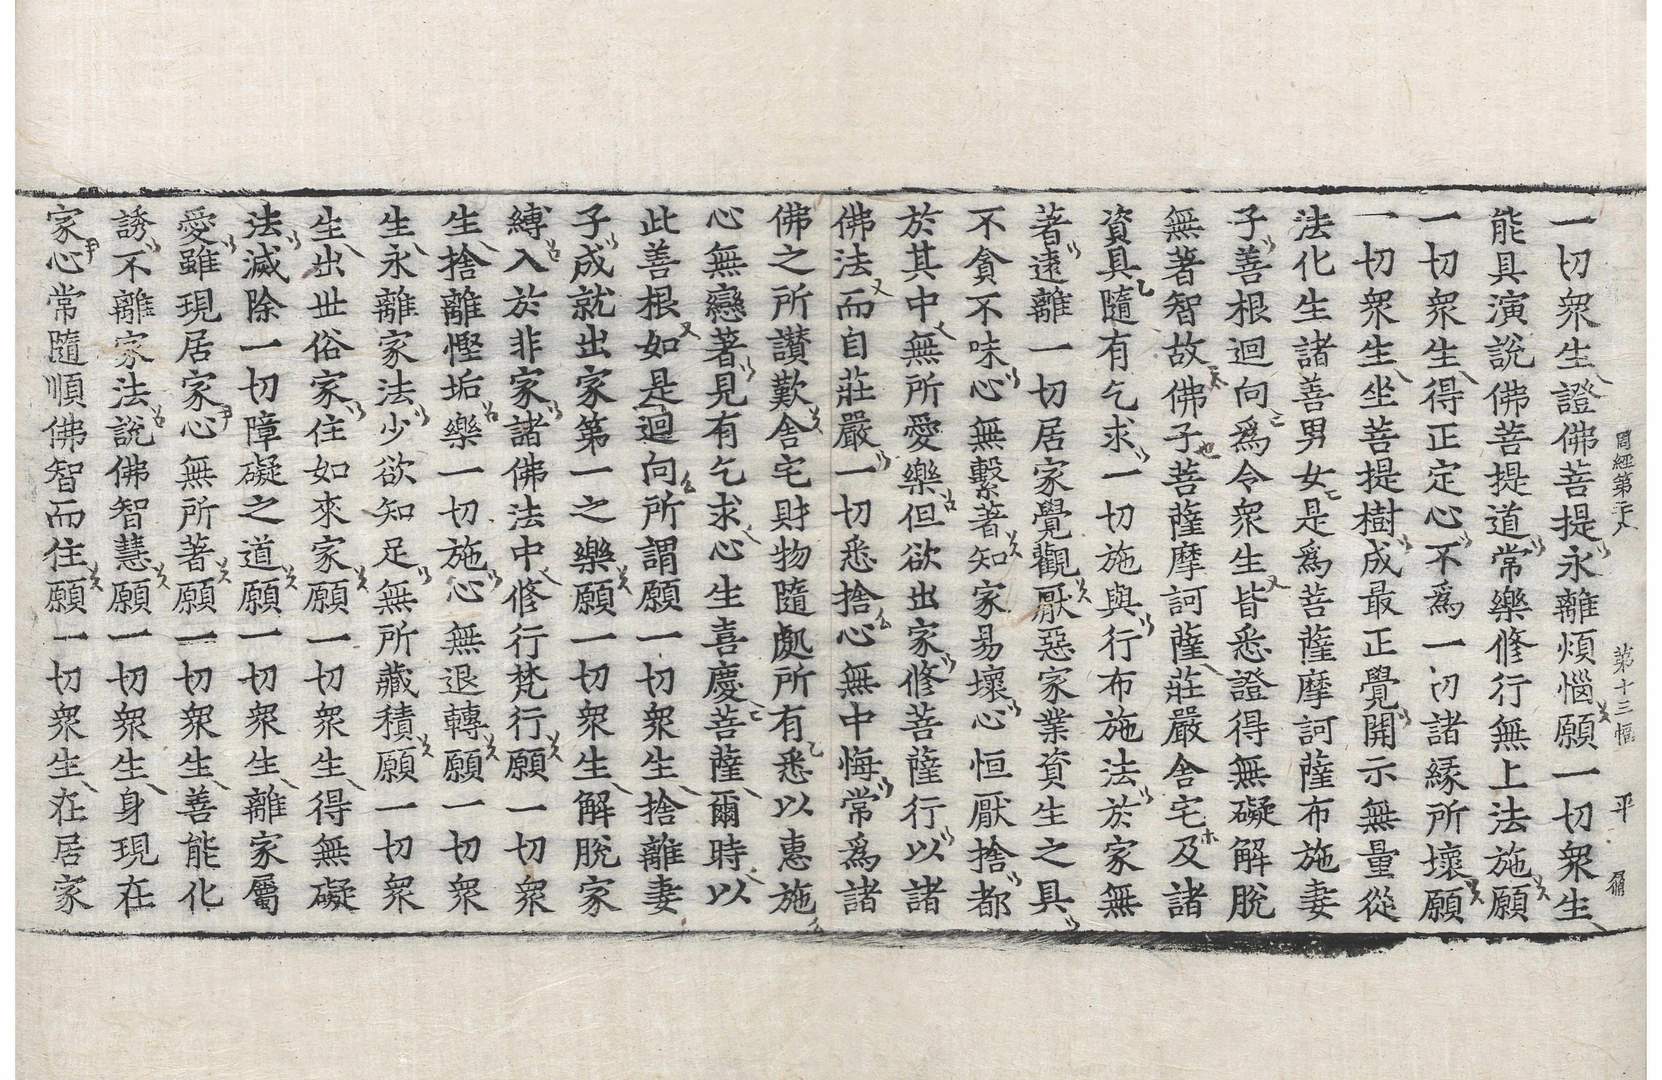 一切衆生證佛菩提永離煩惱願一切衆生
能具演說佛菩提道常樂修行無上法施願
一切衆生得正定心不爲一切諸緣所壞願
一切衆生坐菩提樹成最正覺開示無量從
法化生諸善男女是爲菩薩摩訶薩布施妻
子善根迴向爲令衆生皆悉證得無礙解脫
無著智故佛子菩薩摩訶薩莊嚴舍宅及諸
資具隨有乞求一切施與行布施法於家無
著遠離一切居家覺觀厭惡家業資生之具
不貪不味心無繫著知家易壞心恒厭捨都
於其中無所愛樂但欲出家修菩薩行以諸
佛法而自莊嚴一切悉捨心無中悔常爲諸
佛之所讚歎舍宅財物隨處所有悉以惠施
心無戀著見有乞求心生喜慶菩薩爾時以
此善根如是迴向所謂願一切衆生捨離妻
子成就出家第一之樂願一切衆生解脫家
縛入於非家諸佛法中修行梵行願一切衆
生捨離慳垢樂一切施心無退轉願一切衆
生永離家法少欲知足無所藏積願一切衆
生出世俗家住如來家願一切衆生得無礙
法滅除一切障礙之道願一切衆生離家屬
愛雖現居家心無所著願一切衆生善能化
誘不離家法說佛智慧願一切衆生身現在
家心常隨順佛智而住願一切衆生在居家
周經第二十八 第十三幅 平